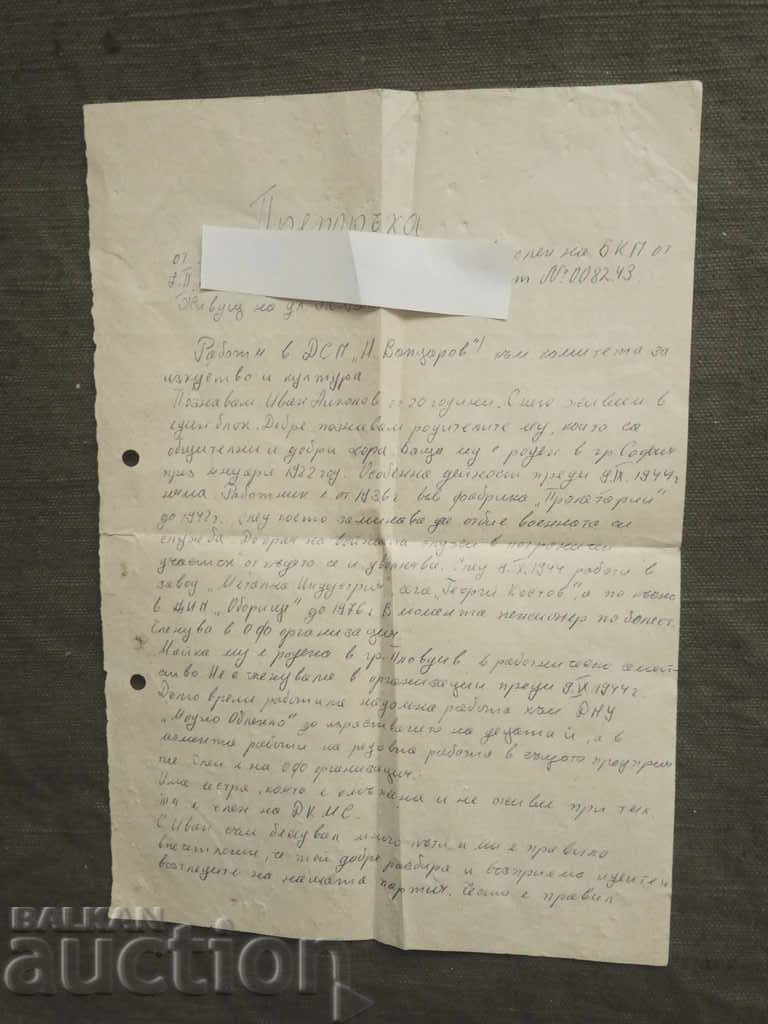 Препоръка
от член на БКП от
7.II. № 008243
Живущ на ул.
Работи в ДСП „Н. Вапцаров“ към комитета за
изкуство и култура
Познавам Иван от 20 години. С него живеем в
един блок. Добре познавам родителите му, които са
общителни и добри хора. Баща му е роден в гр. София
през януари 1922 год. Особенна дейност преди 9.IX.1944 г.
няма. Работник е от 1936 г във фабрика „Пролетарий“
до 1942 г. след което заминава да отбие военната си
служба. До края на войната служи в погранични
участък от където се и уволнява. След 9.IX.1944 работи в
завод „Метална Индустрия“ сега „Георги Костов“, а по късно
в „Оборище“ до 1976 г. В момента пенсионер по болест.
Членува в ОФ организация.
Майка му е родена в гр. Пловдив в работническо семей-
ство Не е членувала в организации преди 9.IX.1944 г.
Дълго време работи на надомна работа към ДНУ
„Модно Облекло“ до израстването на децата ѝ, а в
момента работи на редовна работа в същото предприя-
тие Член е на ОФ организация.
Има сестра, която е омъжена и не живее при тях
Тя е член на ДКМС.
С Иван съм беседвал много пъти и ми е правило
впечатление, че той добре разбира и възприема идеите и
възгледите на нашата партия. Често е правил
BALKAN
auction